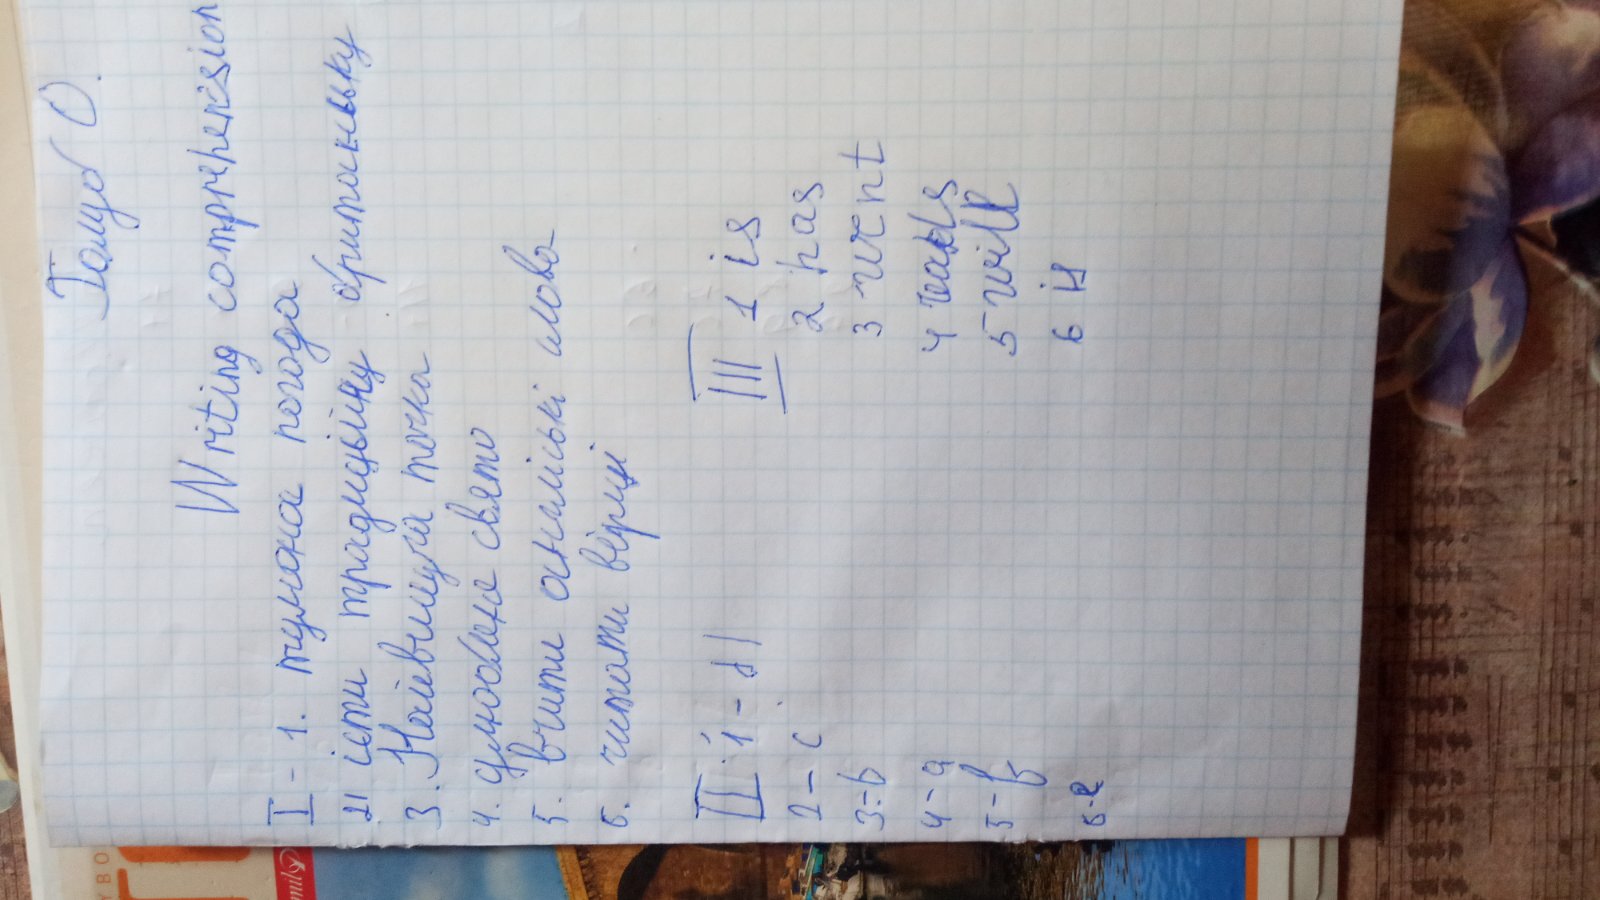 Голуб О.
Writing comprehension
I - 1. туманна погода
2. їсти традиційну британську
3. Найвища точка
4. улюблене свято
5. вчити англійські слова
6. читати вірші
II. 1 - d
2 - c
3 - b
4 - a
5 - f
6 - e
III 1 is
2 has
3 went
4 reads
5 will
6 is
mily